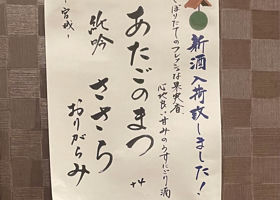 新酒入荷致しました!
しぼりたてのフレッシュな果実香、
心地良い甘みのうすにごり酒
あたごのまつ
純吟 ささら
おりがらみ
-宮城-